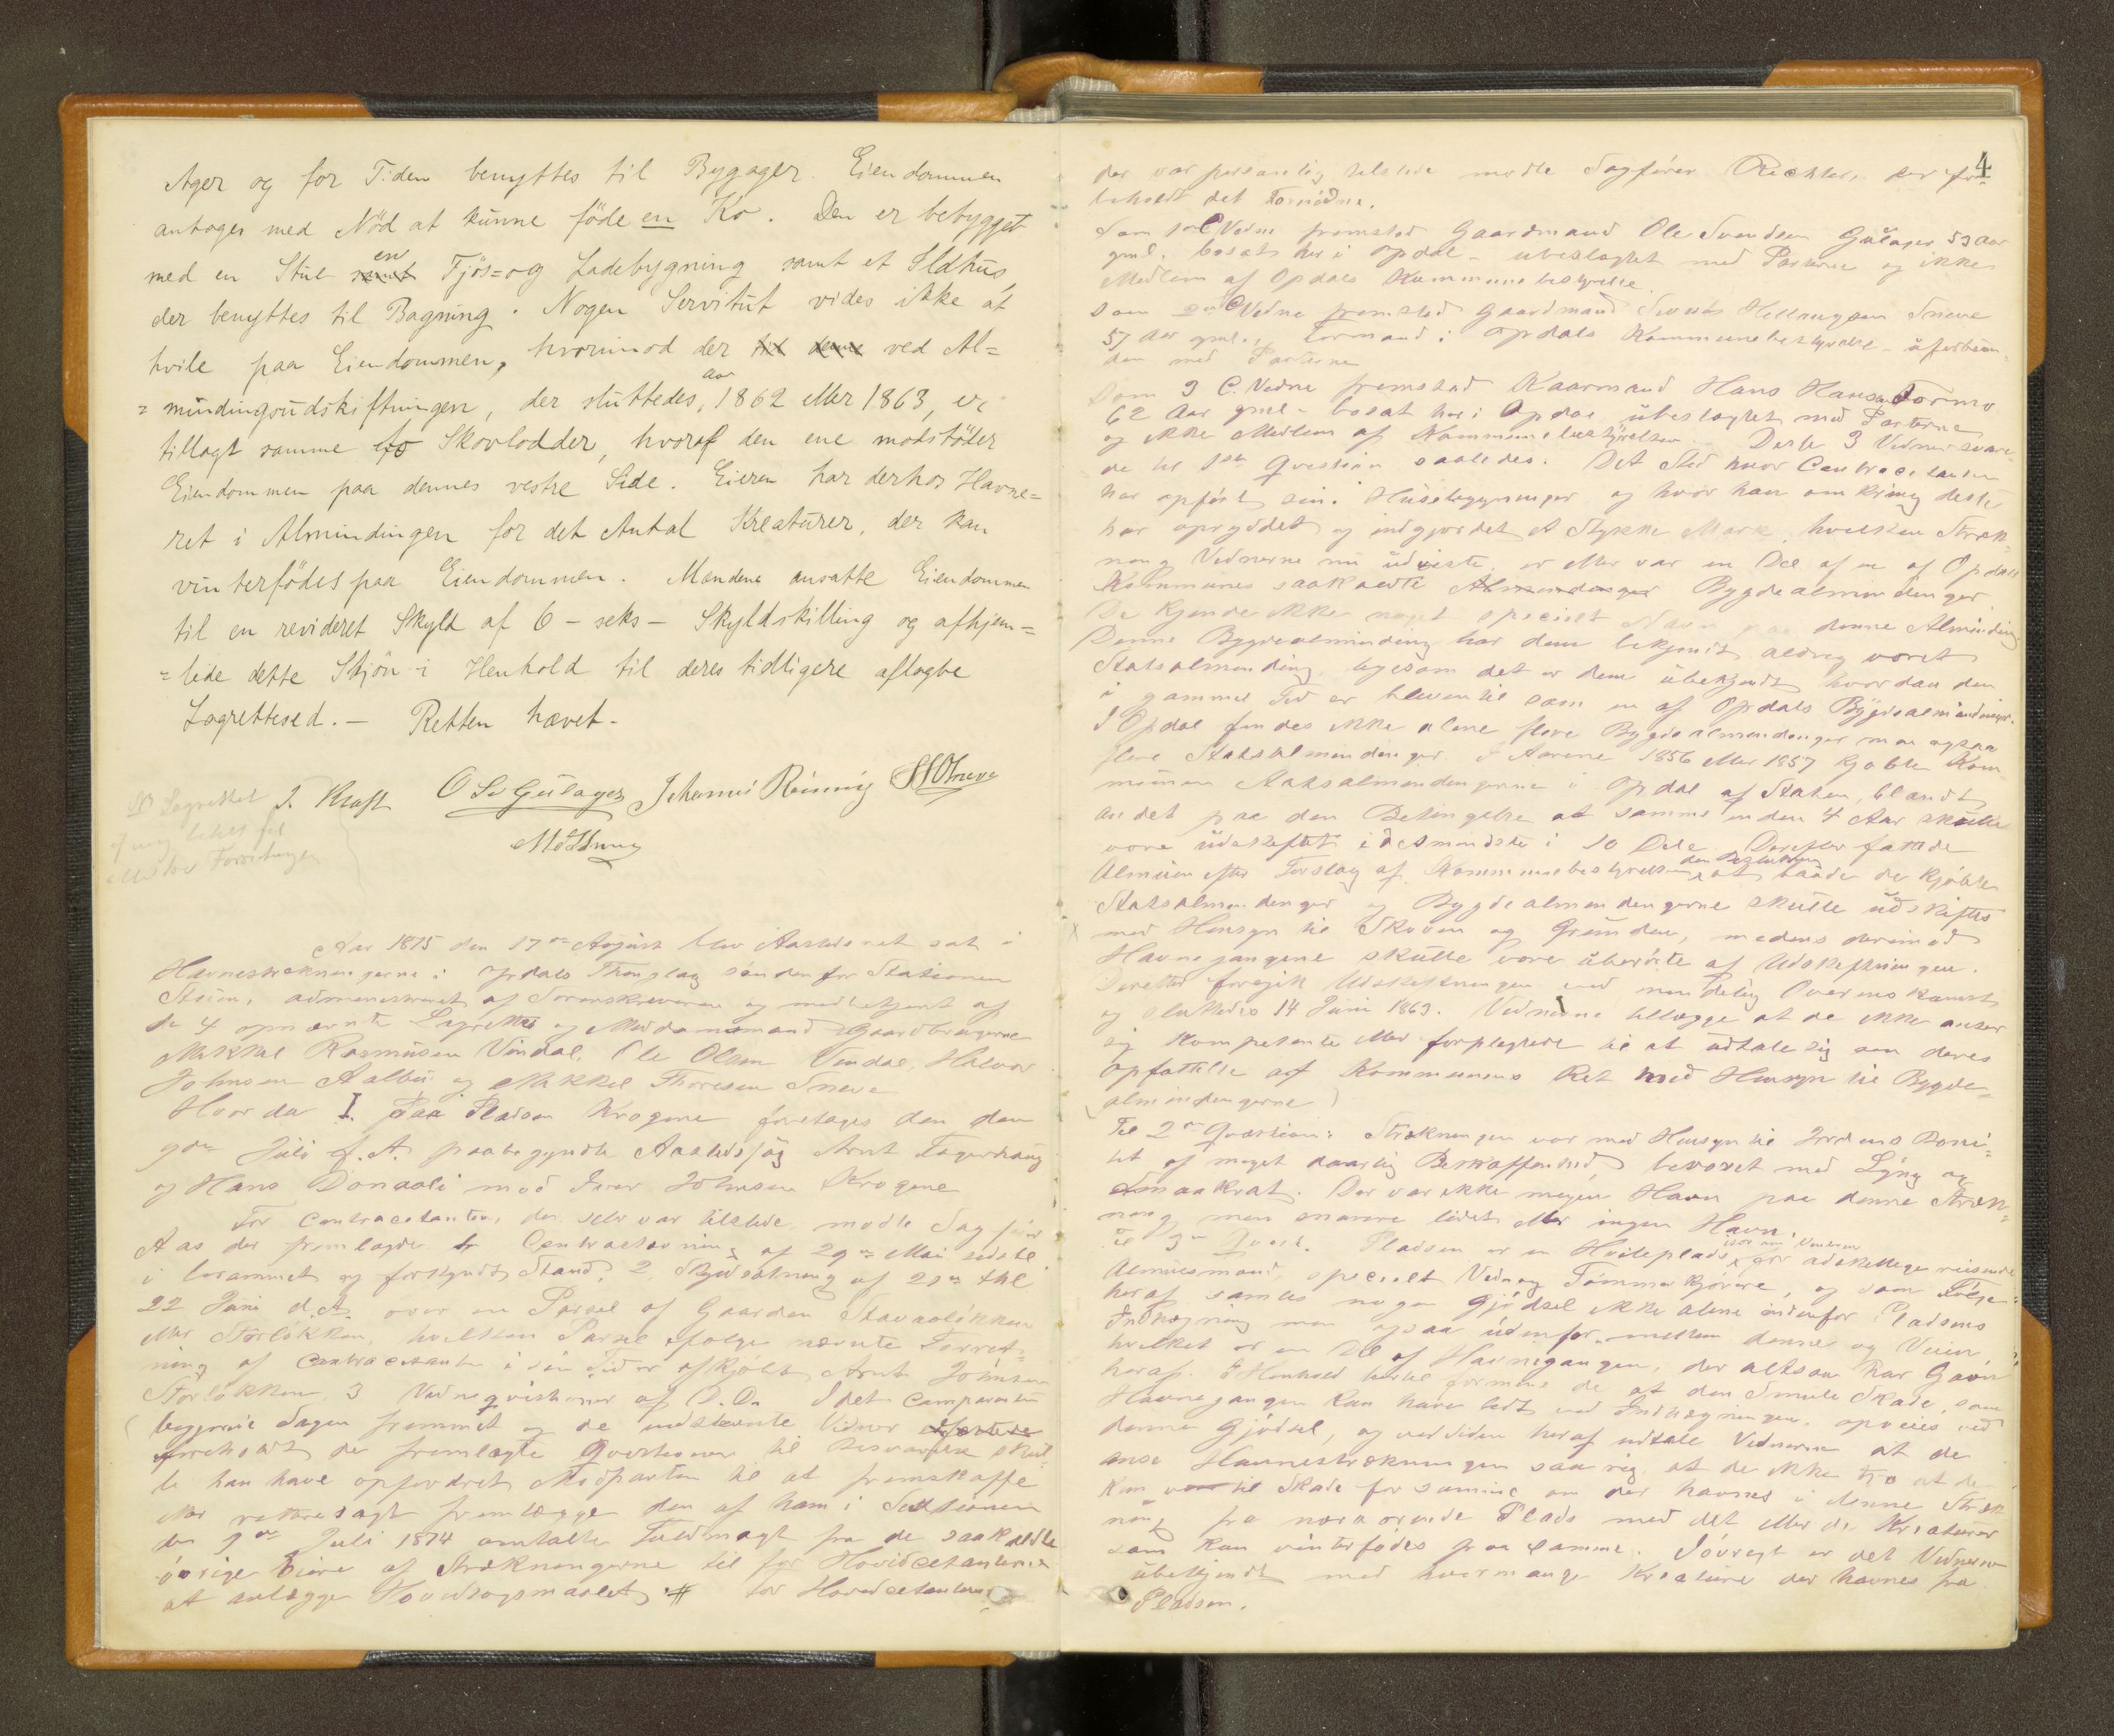 Ager og for Tiden benyttes til Bygager. Eiendommen
antages med Nöd at kunne föde en Ko. Den er bebygget
med en Stue samt en Fjös=og Ladebygning samt et Ildhus,
der benyttes til Bagning. Nogen Servitut vides ikke at
hvile paa Eiendommen, hvorimod der til denne ved Al=
=mindingsudskiftningen, der sluttedes aar 1862 eller 1863, er
tillagt samme to Skovlodder, hvoraf den ene modstöder
Eiendommen paa dennes vestre Side. Eieren har derhos Havne=
ret i Almindingen for det Antal Kreaturer, der kan
vinterfödes paa Eiendommen. Mændene ansatte Eiendommen
til en revideret Skyld af 6 - seks - Skyldskilling og afhjem=
=lede dette Skjön i Henhold til deres tidligere aflagte
Lagrettesed. — Retten hævet.
J. Kraft O Sv Gulager Johannes Rönnig
Lagrettet
Aar 1875 den 17de August blev Aastedsret sat i
Havnestrækningerne i Opdals Thinglag sönden for Stationen
Stuen, administreret af Sorenskriveren og medbetjent af
de 4 opnævnte Lagrettes og Meddomsmænd Gaardbrugerne
Mikkel Rasmusen Vindal, Ole Olsen Vindal, Halvor
Johnsen Aalbu og Mikkel Thoresen Sneve
Hvor da I. paa Pladsen Krogene foretages den den
9de Juli f. A. paabegyndte Aastedssag Arnt Fagerhaug
og Hans Donaali mod Iver Johnsen Krogene
For Contracitanten, der selv var tilstede mödte Sagförer
Aas der fremlagde Contrastævning af 29de Mai sidstl
i berammet og forkyndt Stand, 2, Skjödsætning af 21de thl
22 Juni d. A. over en Parsel af Gaarden Stavaalökken
eller Storlökken, hvilken Parsel ifölge nævnte Forret=
ning af Contracitanten i sin Tid er afkjöbt Arnt Johnsen
Storlökken, 3 Vidneqvestioner af D. D. Idet Comparenten
begjærede Sagen fremmet og de indstævnte Vidner
foreholdt de fremlagte Qvestioner til Besvarelse skul=
le han have opfordret Modparten til at fremskaffe
eller rettere sagt fremlægge den af ham i Sessionen
den 9de Juli 1874 omtalte Fuldmagt fra de saakaldte
övrige Eiere af Strækningerne til for Hovedcitanterne
at anlægge Hovedsögsmaalet. # For Hovedcitanterne
4
der var personlig tilstede mödte Sagförer Richter, der for=
beholdt det Fornödne.
Som 1ste Vidne fremstod Gaardmand Ole Svendsen Gulager 53 Aar
gml. bosat her i Opdal - ubeslægtet med Parterne og ikke
Medlem af Opdals Kommunebestyrelse.
Som 2det Vidne fremstod Gaardmand Sivert Hellaugsen Sneve
57 Aar gml., Formand i Opdals Kommunebestyrelse - uforbun=
den med Parterne
Som 3 C. Vidne fremstod Kaarmand Hans Hansen Formo
62 Aar gml - bosat her i Opdal ubeslægtet med Parterne
og ikke Medlem af Kommunebestyrelsen. Desse 3 Vidner svare=
de til 1ste Qvestion saaledes. Det Sted hvor Contracitanten
har opfört sine Husebygninger og hvor han omkring desse
har opryddet og indgjærdet et Stykke Mark, hvilken Stræk=
ning Vidnerne nu udviste, er eller var en Del af en af Opdals
Kommunes saakaldte Almindinger Bygdealmindinger
De kjende ikke noget specielt Navn paa denne Alminding
Denne Bygdealminding har dem bekjendt aldrig været
Statsalminding, ligesom det er dem ubekjendt hvordan den
i gammel Tid er bleven til som en af Opdals Bygdealmindinger.
I Opdal findes ikke alene flere Bygdealmindinger men ogsaa
flere Statsalmindinger. I Aarene 1856 eller 1857 kjöbte Kom=
munen Statsalmindingerne i Opdal af Staten, blandt
andet paa den Betingelse at samme inden 4 Aar skulle
være udskiftet idetmindste i 10 Dele. Derefter fattede
Almuen efter Forslag af Kommunebestyrelsen den Beslutning at baade de kjöbte
Statsalmindinger og Bygdealmindingerne skulle udskiftes
med Hensyn til Skoven og Grunden, medens derimod
Havnegangene skulle være uberörte af Udskiftningen.
Derefter foregik Udskiftningen ved mindelig Overenskomst
og sluttedes 14 Juni 1863. Vidnerne tillægge at de ikke anser
sig kompetente eller forpligtede til at udtale sig om deres
Opfattelse af Kommunens Ret med Hensyn til Bygde=
almindingerne)
Til 2den Qvestion: Strækningen var med Hensyn til Jordens Boni=
tet af meget daarlig Beskaffenhed bevoxet med Lyng og
Smaakrat. Der var ikke megen Havn paa denne Stræk=
ning men snarere lidet eller ingen Havn.
Til 3die Qvest. Pladsen er en Hvileplads især om Vinteren for adskillige reisende
Almuesmænd, specielt Ved og Tömmerkjörere, og som Fölge
heraf samles nogen Gjödsel ikke alene indenfor Pladsens
Indhegning men ogsaa udenfor mellem denne og Veien,
hvilket er en Del af Havnegangen, der altsaa har Gavn
heraf. I Henhold hertil formene de at den Smule Skade, som
Havnegangen kan have lidt ved Indhegningen, opveies ved
denne Gjödsel, og ved Siden heraf udtale Vidnerne at de
anse Havnestrækningen saa rig, at de ikke tro at de
kan være til Skade for samme om der havnes i denne Stræk
ning fra nærværende Plads med det eller de Kreaturer
som kan vinterfödes paa samme. Iövrigt er det Vidnerne
ubekjendt med hvormange Kreature der havnes fra
Pladsen.